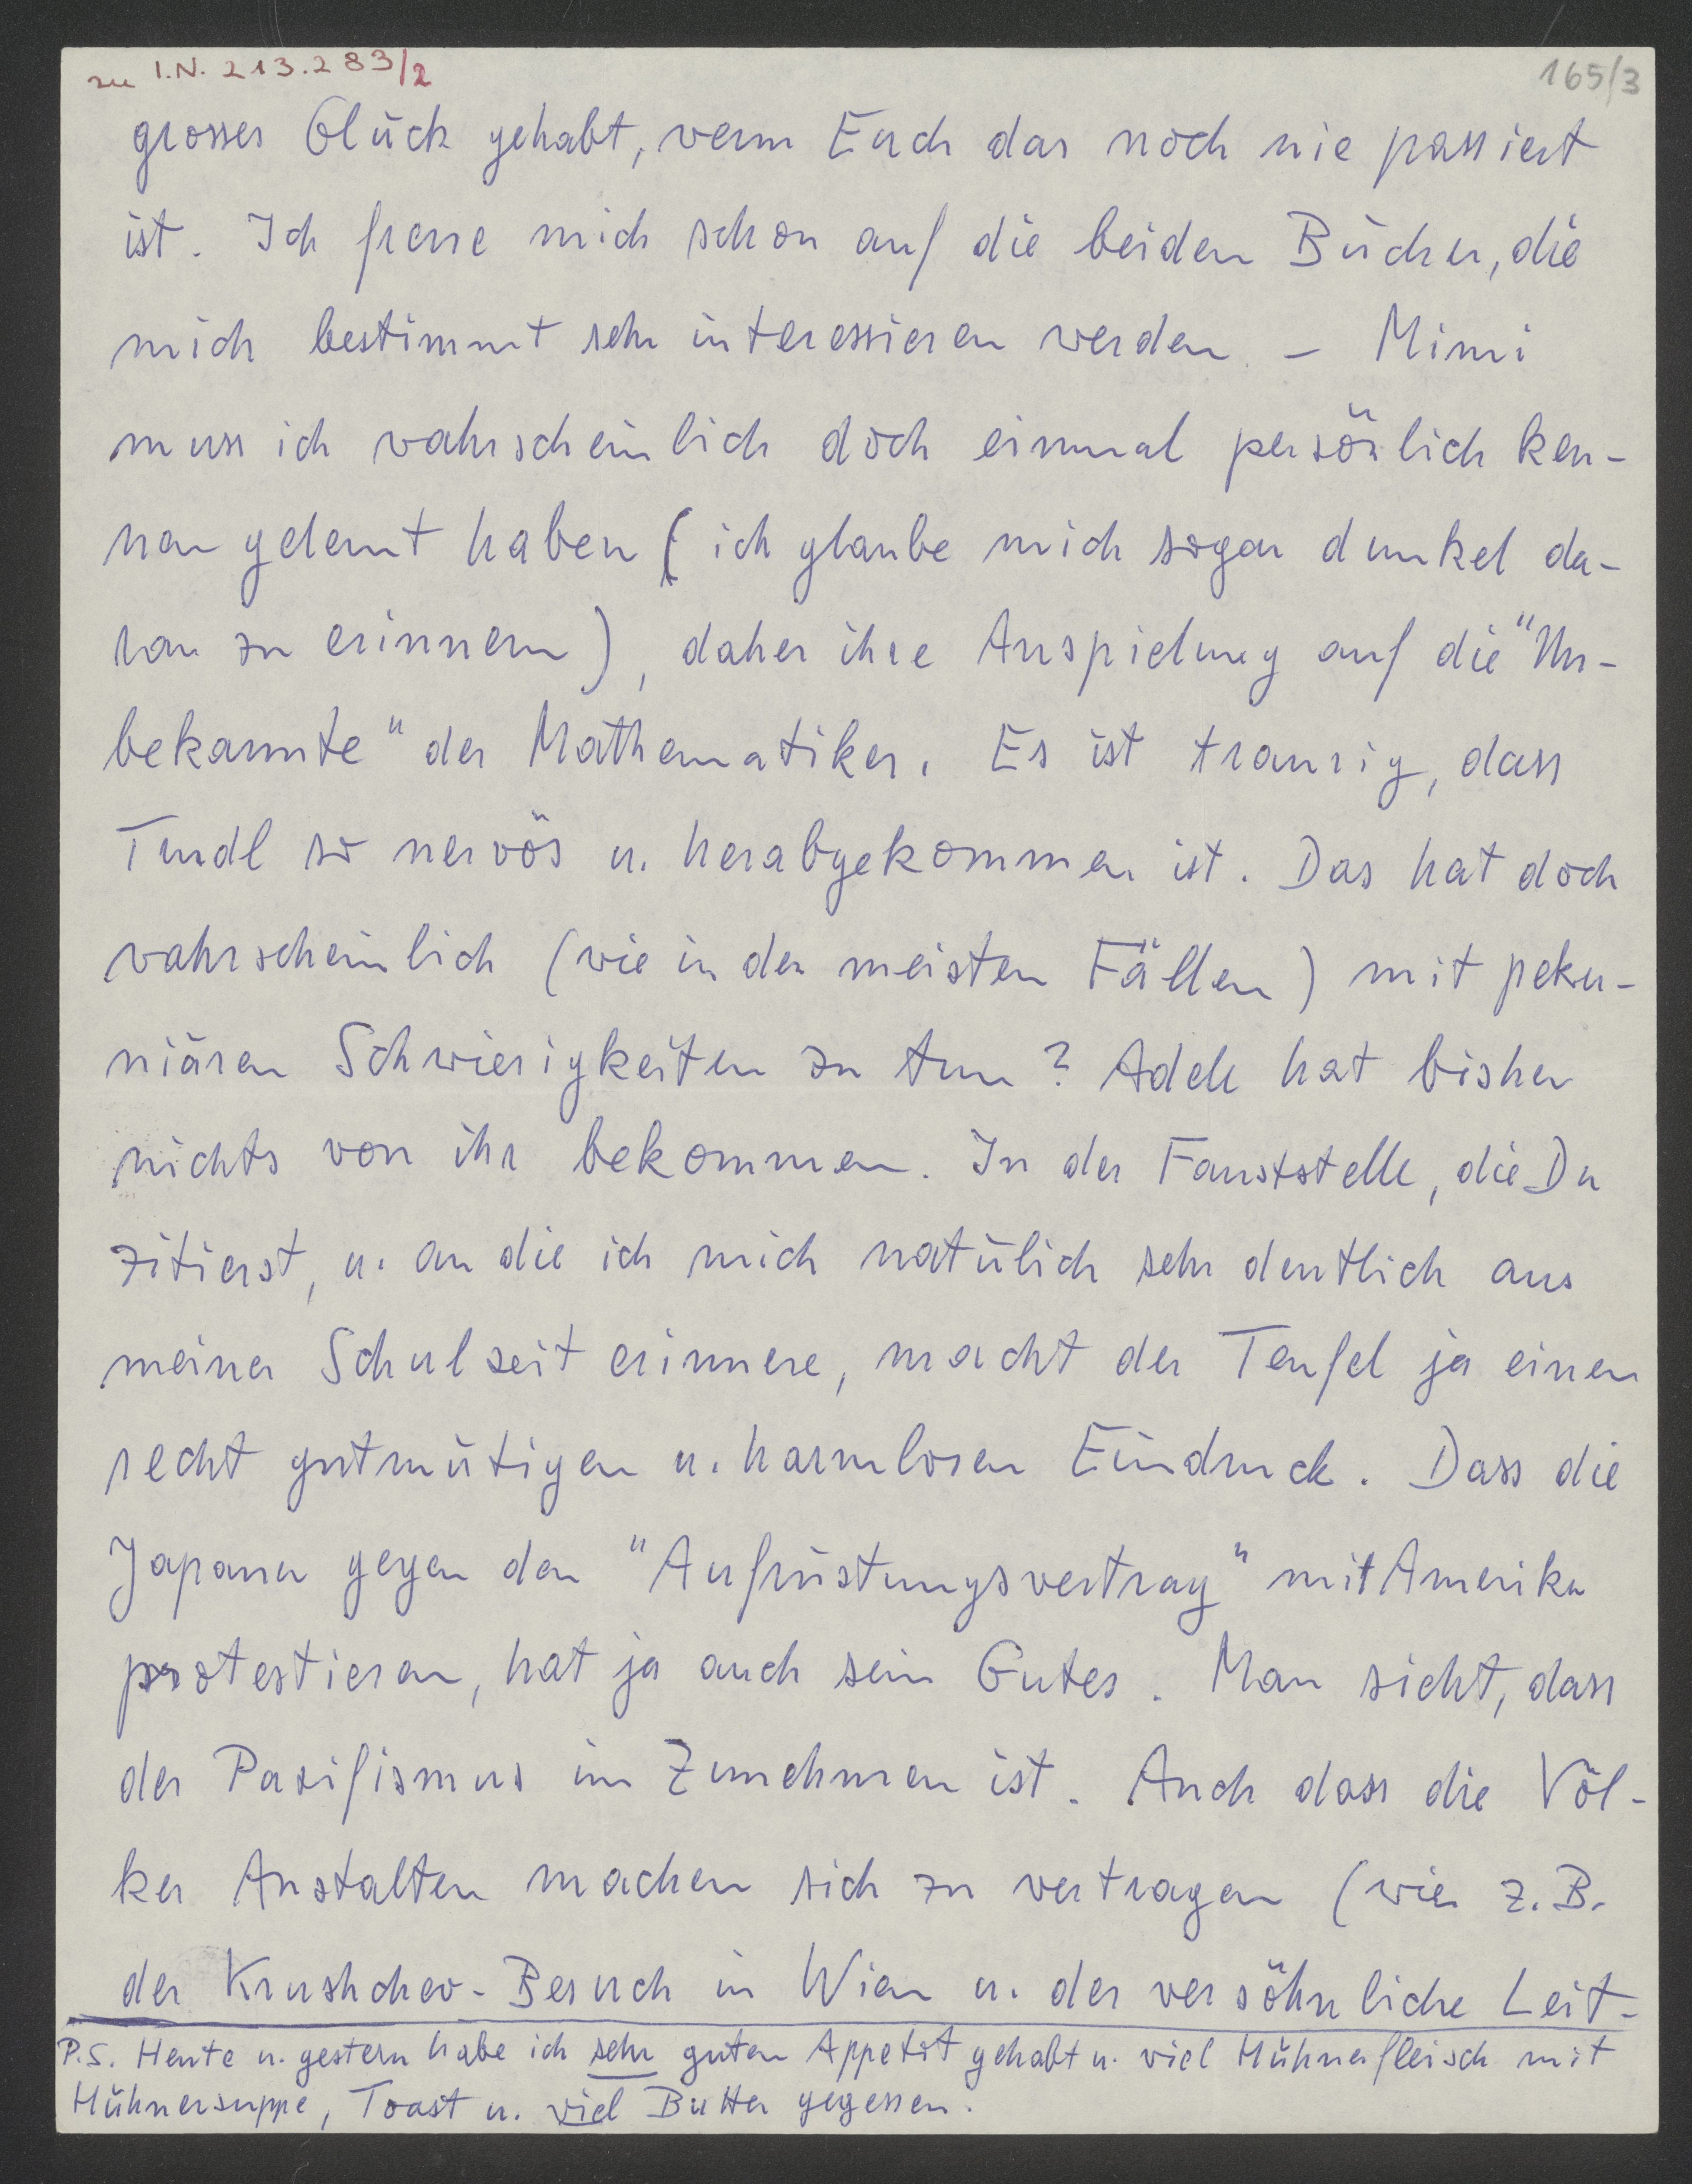 zu I.N. 213.283/2
165/3
grosses Glück gehabt, wenn Euch das noch nie passiert
ist. Ich freue mich schon auf die beiden Bücher, die
mich bestimmt sehr interessieren werden. – Mimi
muss ich wahrscheinlich doch einmal persönlich ken-
nen gelernt haben (ich glaube mich sogar dunkel da-
ran zu erinnern), daher ihre Anspielung auf die "Un-
bekannte" der Mathematiker. Es ist traurig, dass
Trudl so nervös u. herabgekommen ist. Das hat doch
wahrscheinlich (wie in den meisten Fällen) mit peku-
niären Schwierigkeiten zu tun? Adele hat bisher
nichts von ihr bekommen. In der Fauststelle, die Du
zitierst, u. an die ich mich natülich sehr deutlich aus
meiner Schulzeit erinnere, macht der Teufel ja einen
recht gutmütigen u. harmlosen Eindruck. Dass die
Japaner gegen den "Aufrüstungsvertrag" mit Amerika
protestieren, hat ja auch sein Gutes. Man sieht, dass
der Pazifismus im Zunehmen ist. Auch dass die Völ-
ker Anstalten machen sich zu vertragen (wie z.B.
der Krushchev-Besuch in Wien u. der versöhnliche Leit-
P.S. Heute u. gestern habe ich sehr guten Appetit gehabt u. viel Hühnerfleisch mit
Hühnersuppe, Toast u. viel Butter gegessen.